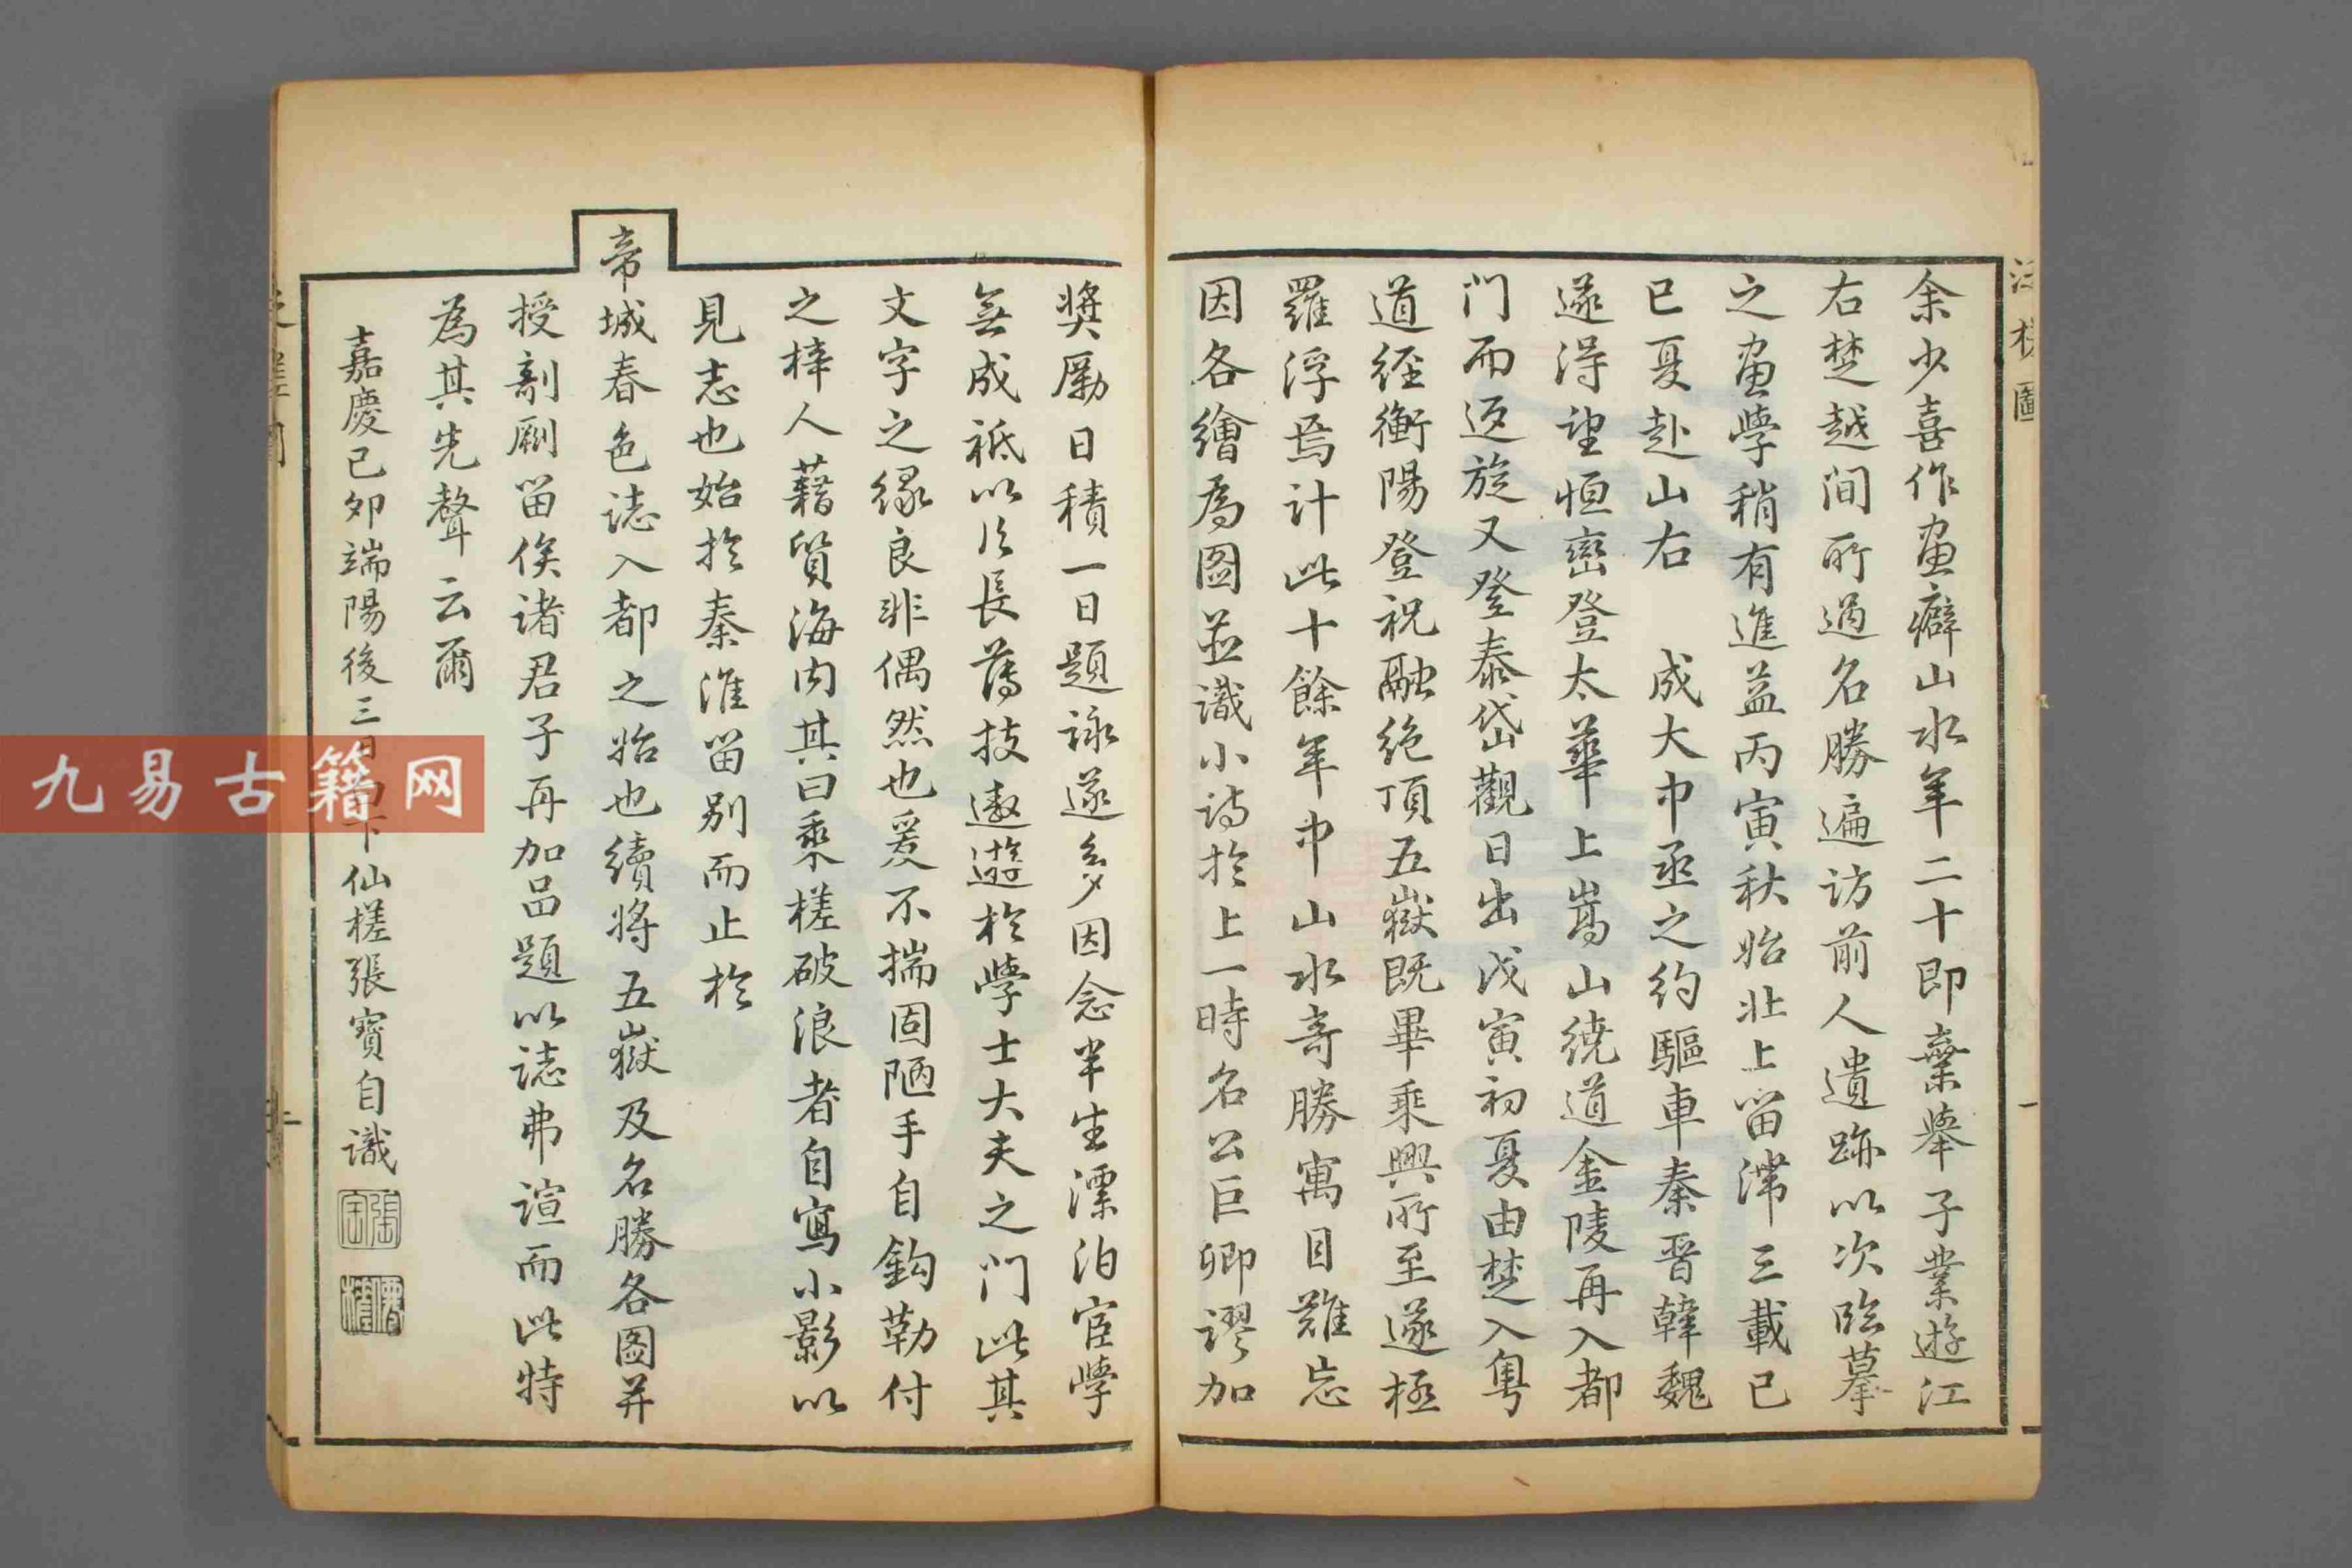 余少喜作畫癖山水年二十即棄舉子業遊江
右楚越間所過名勝遍访前人遺跡以次臨摹
之畫學稍有進益丙寅秋始北上留滯三載己
巳夏赴山右 成大中丞之約驅車秦晋韓魏
遂得望恒巒登太華上嵩山繞道金陵再入都
门而返旋又登泰岱觀日出戊寅初夏由楚入粤
道经衡陽登祝融絶頂五嶽既畢乘興所至遂極
羅浮焉計此十餘年中山水奇勝寓目難忘
因各繪為图並識小诗於上一時名公巨卿謬加
奬勵日積一日題詠遂多因念半生漂泊宦學
無成祗以片長薄技遨遊於學士大夫之门此其
文字之緣良非偶然也爰不揣固陋手自鈎勒付
之梓人藉質海内其曰乘槎破浪者自寫小影以
見志也始於秦淮留别而止於
帝城春色誌入都之始也續将五嶽及名勝各图并
授剞劂留俟诸君子再加品題以誌弗諠而此特
為其先聲云爾
嘉慶己卯端陽後三日白下仙槎張寶自識
張寶
仙槎
九易古籍网